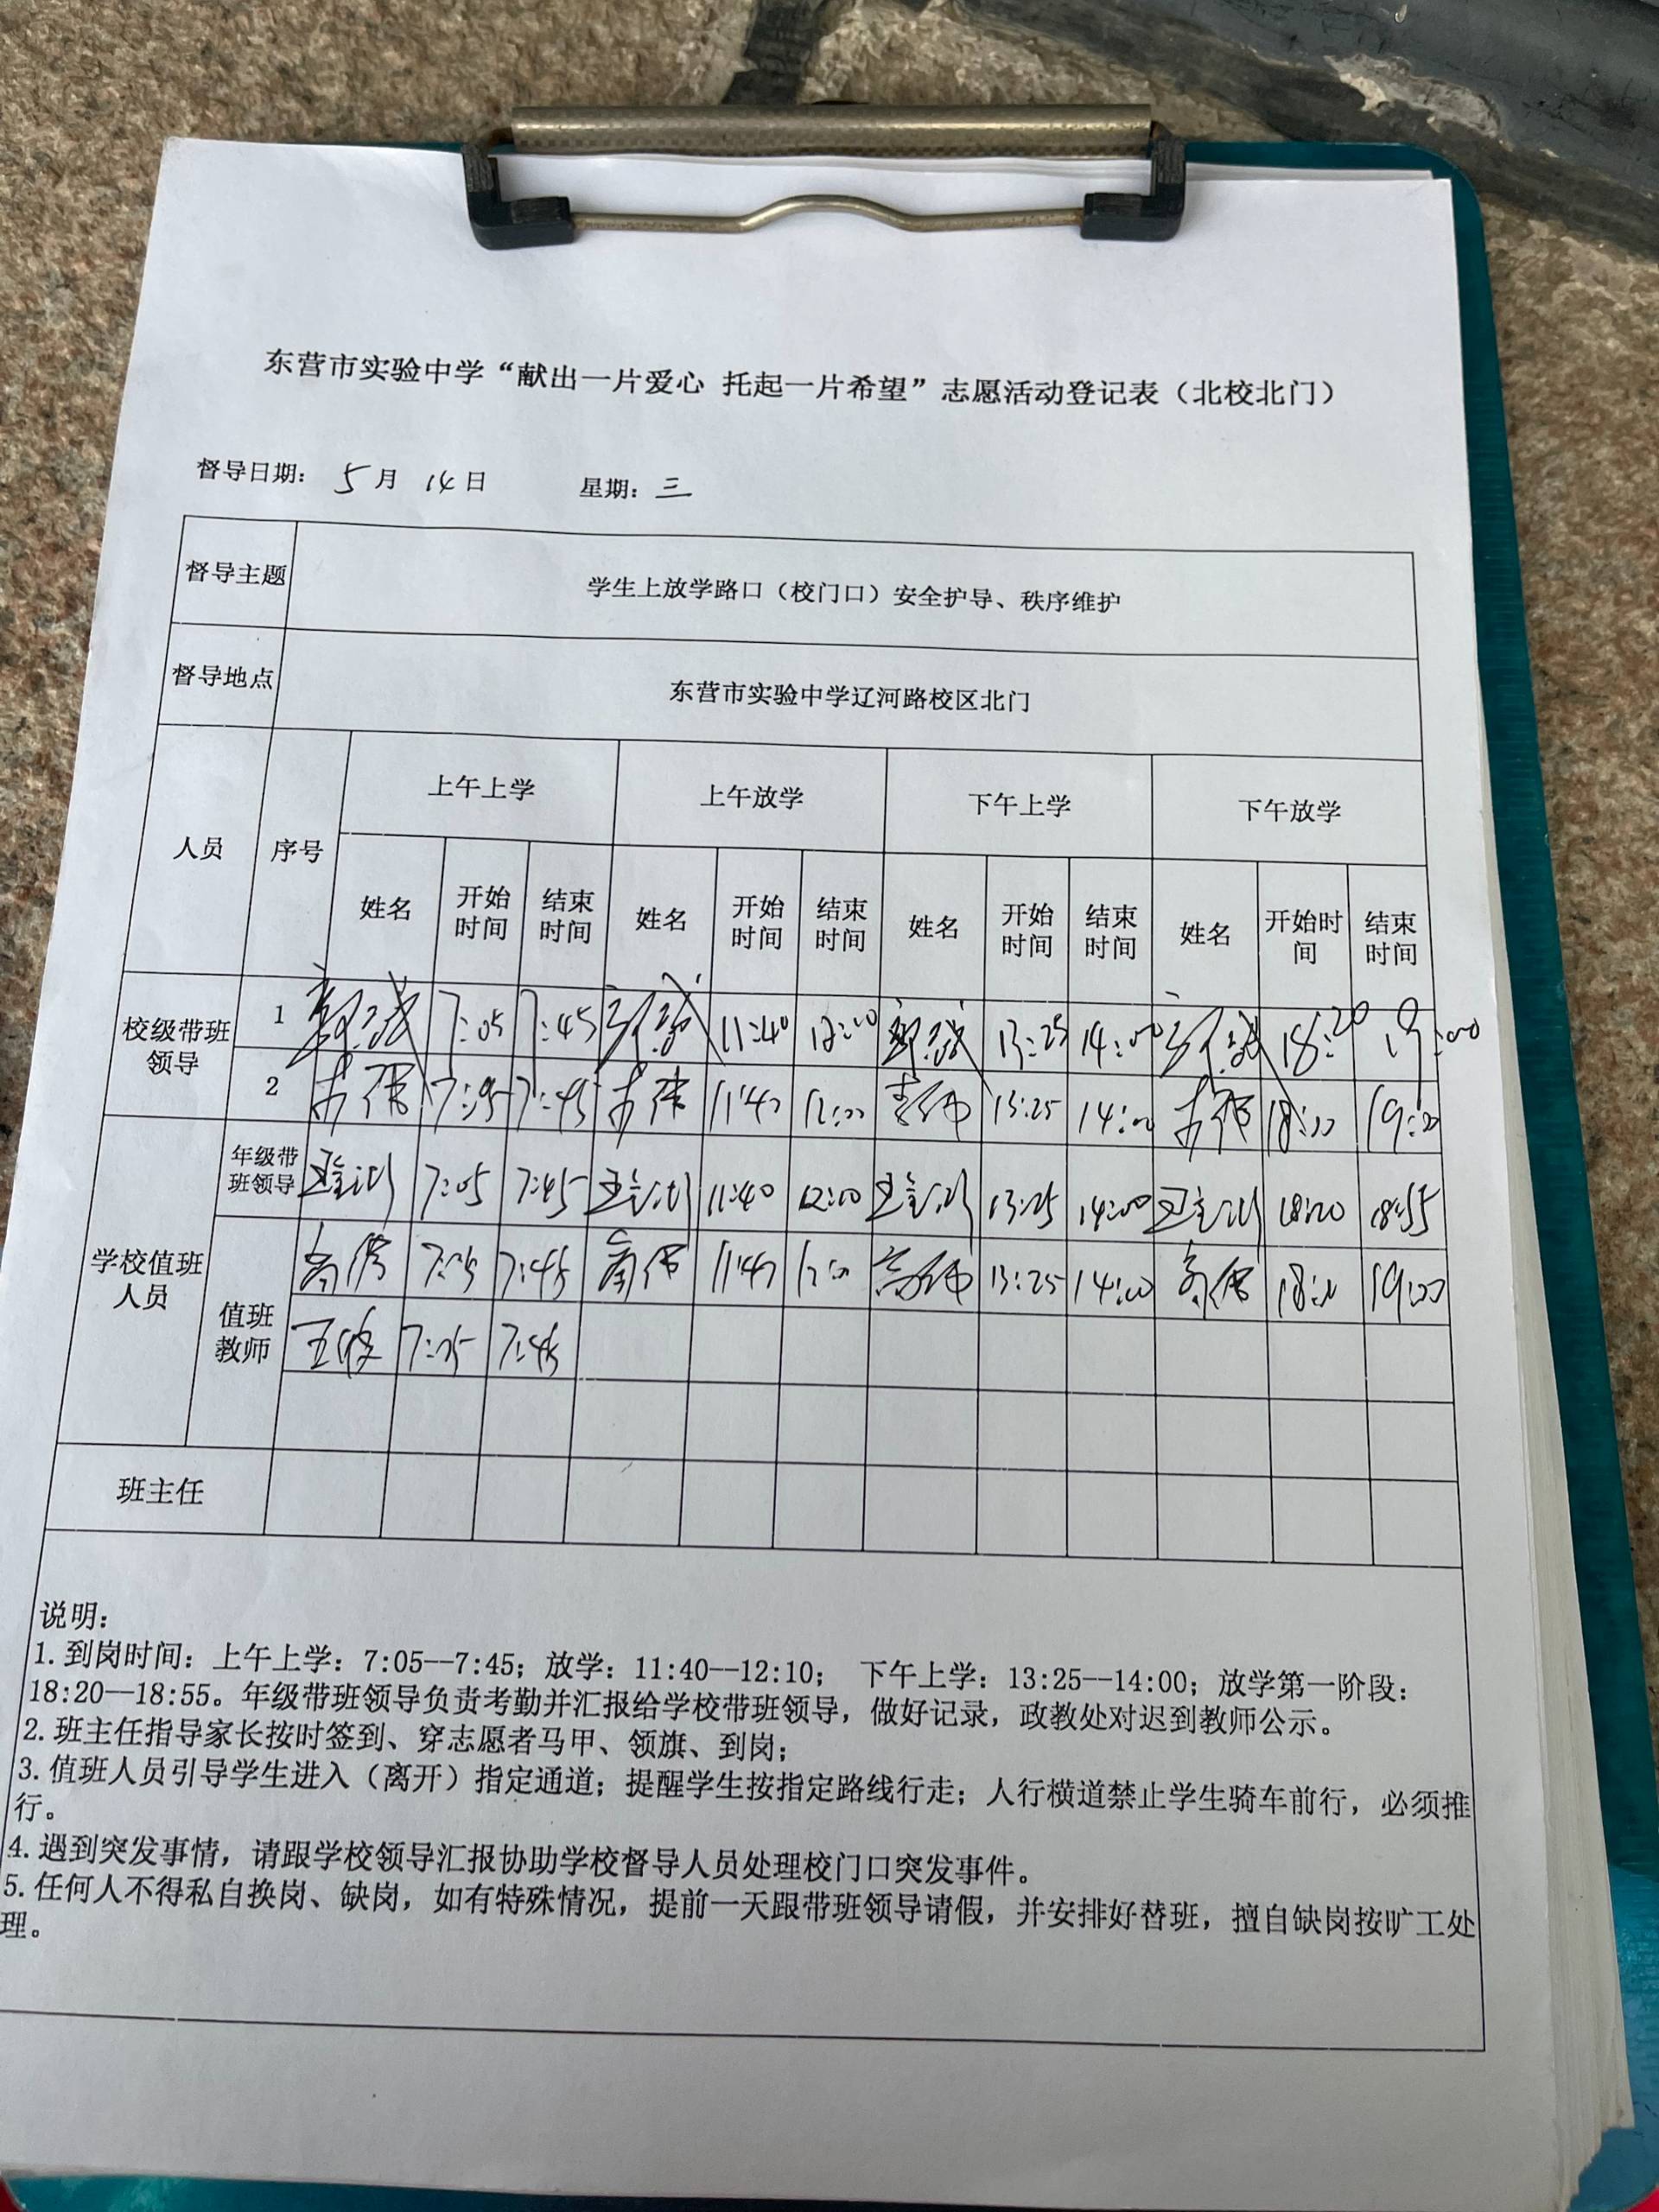 东营市实验中学“献出一片爱心 托起一片希望”志愿活动登记表（北校北门）
督导日期： 5月 14日 星期：三
督导主题 学生上放学路口（校门口）安全护导、秩序维护
督导地点 东营市实验中学辽河路校区北门
人员 序号 上午上学 上午放学 下午上学 下午放学
姓名 开始时间 结束时间 姓名 开始时间 结束时间 姓名 开始时间 结束时间 姓名 开始时间 结束时间
校级带班领导 1 7:05 7:45 11:40 12:00 13:25 14:00 18:20 19:00
2 7:45 11:40 12:00 13:25 14:00 19:00
学校值班人员 年级带班领导 7:05 7:45 11:40 12:00 13:25 14:00 18:20 18:55
值班教师 7:45 11:40 13:25 14:00 19:00
7:45
班主任
说明：
1.到岗时间：上午上学：7:05--7:45；放学：11:40--12:10； 下午上学：13:25--14:00；放学第一阶段：
18:20--18:55。年级带班领导负责考勤并汇报给学校带班领导，做好记录，政教处对迟到教师公示。
2.班主任指导家长按时签到、穿志愿者马甲、领旗、到岗；
3.值班人员引导学生进入（离开）指定通道；提醒学生按指定路线行走；人行横道禁止学生骑车前行，必须推
行。
4.遇到突发事情，请跟学校领导汇报协助学校督导人员处理校门口突发事件。
5.任何人不得私自换岗、缺岗，如有特殊情况，提前一天跟带班领导请假，并安排好替班，擅自缺岗按旷工处
理。